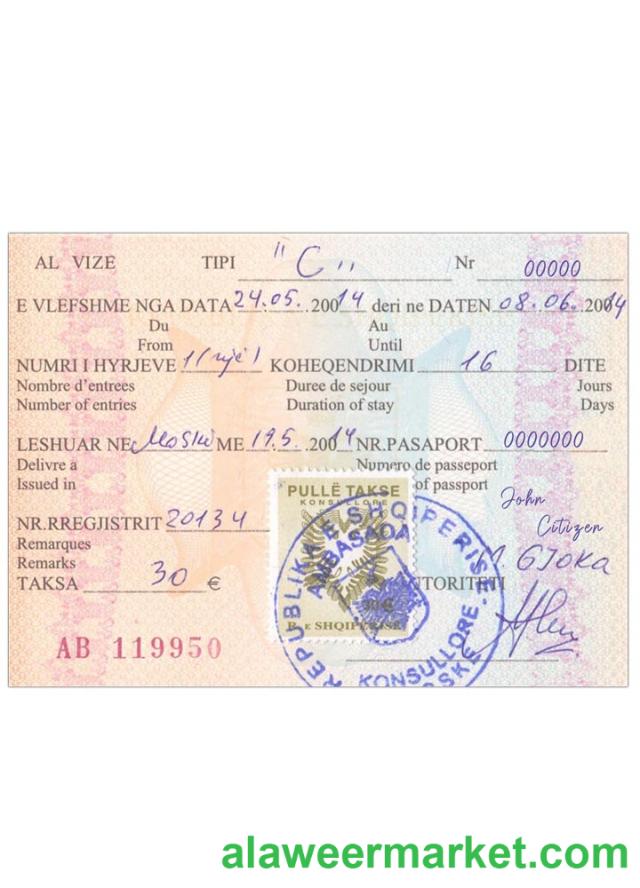 AL VIZE TIPI "C" Nr 00000
E VLEFSHME NGA DATA 24.05.20014 deri ne DATEN 08.06.20014
Du Au
From Until
NUMRI I HYRJEVE 1(një) KOHEQENDRIMI 16 DITE
Nombre d'entrees Duree de sejour Jours
Number of entries Duration of stay Days
LESHUAR NE ME 19.5.20014 NR.PASAPORT 0000000
Delivre a Numero de passeport
Issued in of passport
PULLË TAKSE
KONSULLORE
John
Citizen
NR.RREGJISTRIT 20134
Remarques
Remarks
TAKSA 30 €
GJOKA
30 €
R. E SHQIPERISE
REPUBLIKA E SHQIPERISE
AMBASADA
KONSULLORE
AB 119950
alaweermarket.com